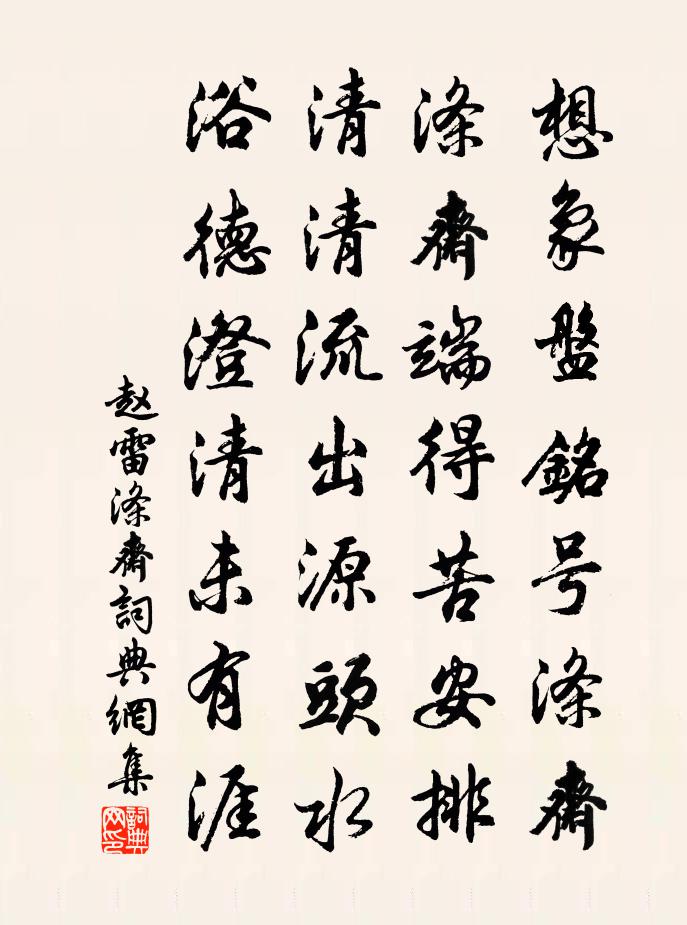 想象盤銘号涤齋
涤齋端得苦安排
清清流出源頭水
浴德澄清未有涯
赵雷涤齋詞典網集
詞典网印